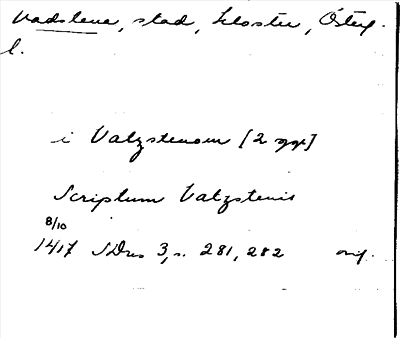 Vadstena, stad, kloster, Österg.
l.
i Vatzstenom [2 ggr]
Scriptum Vatzstenis
8/10
1417 SDns 3, s. 281, 282 orig.